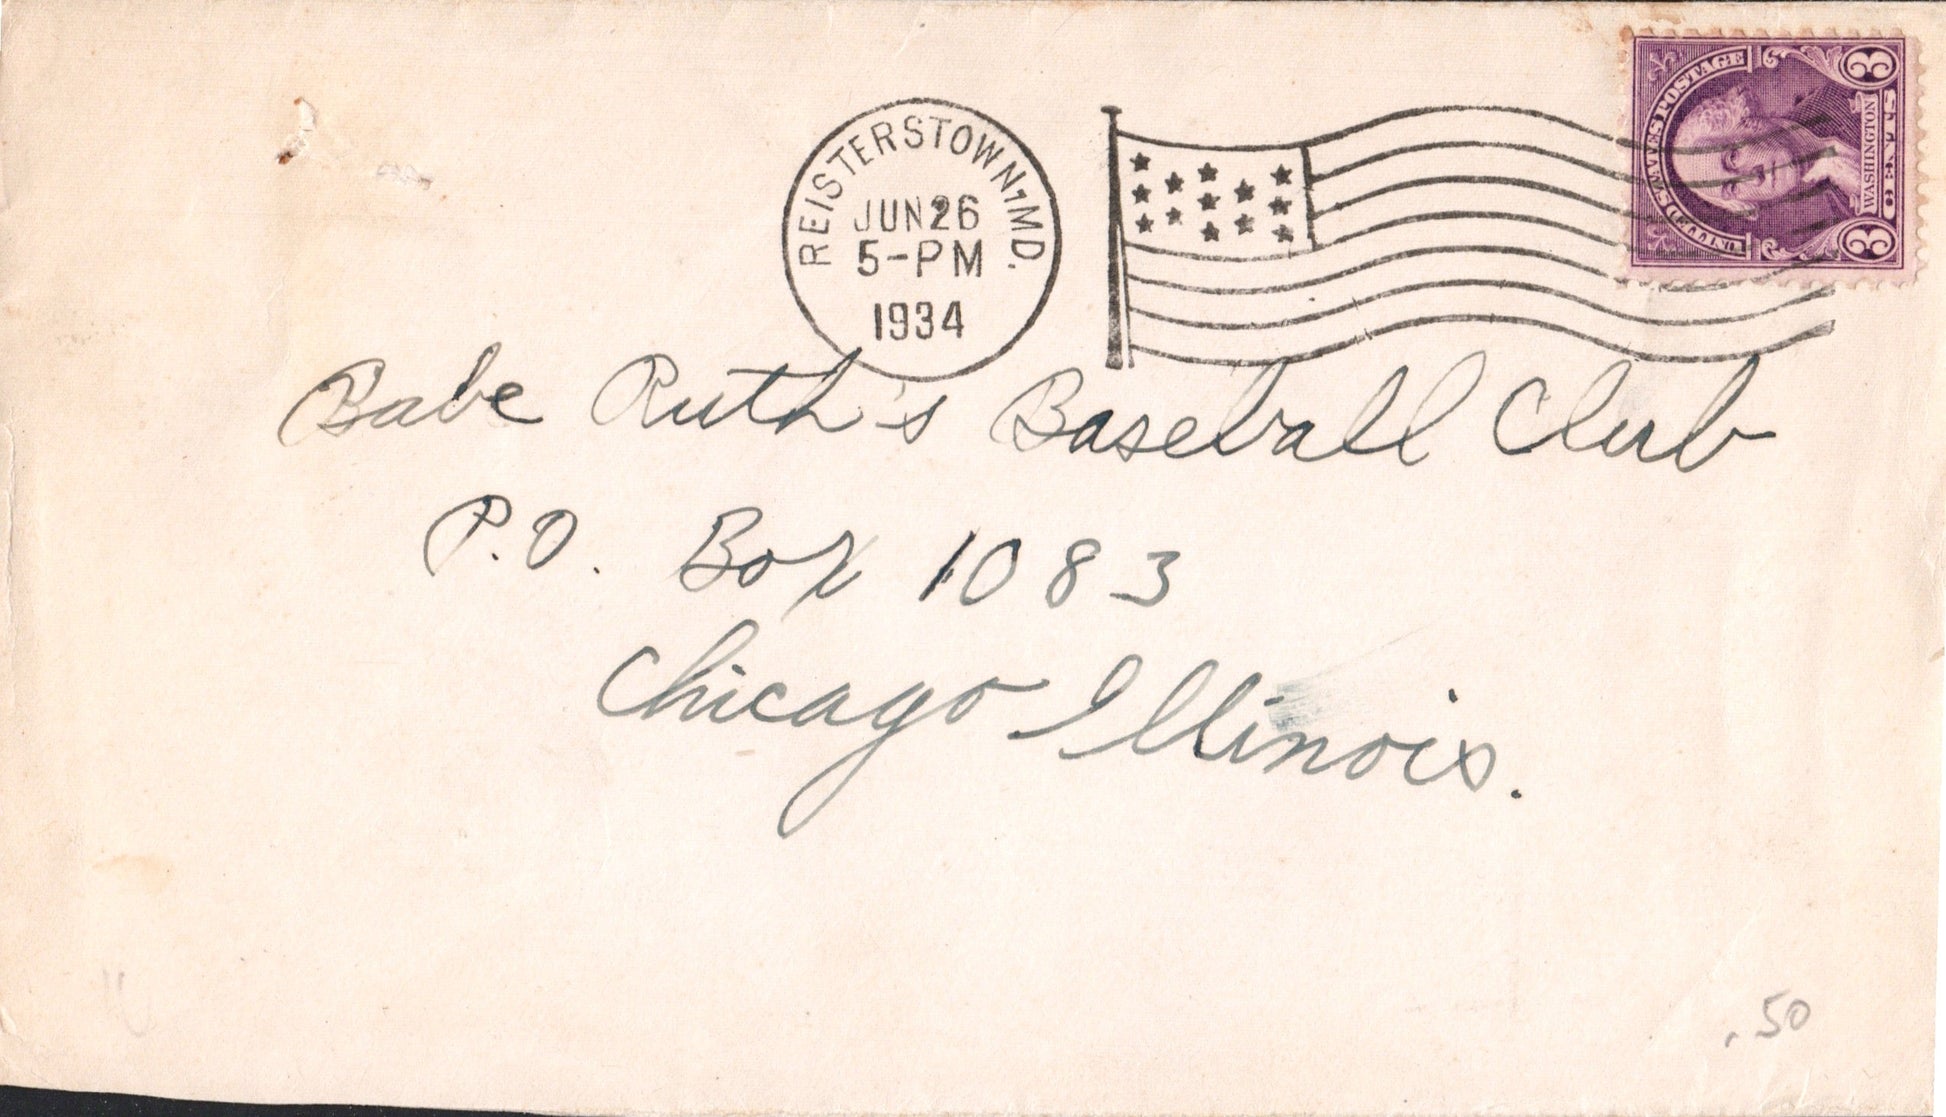 REISTERSTOWN, MD.
JUN 26
5-PM
1934
UNITED STATES POSTAGE
WASHINGTON
3 CENTS 3
Babe Ruth's Baseball Club
P.O. Box 1083
Chicago Illinois.
.50